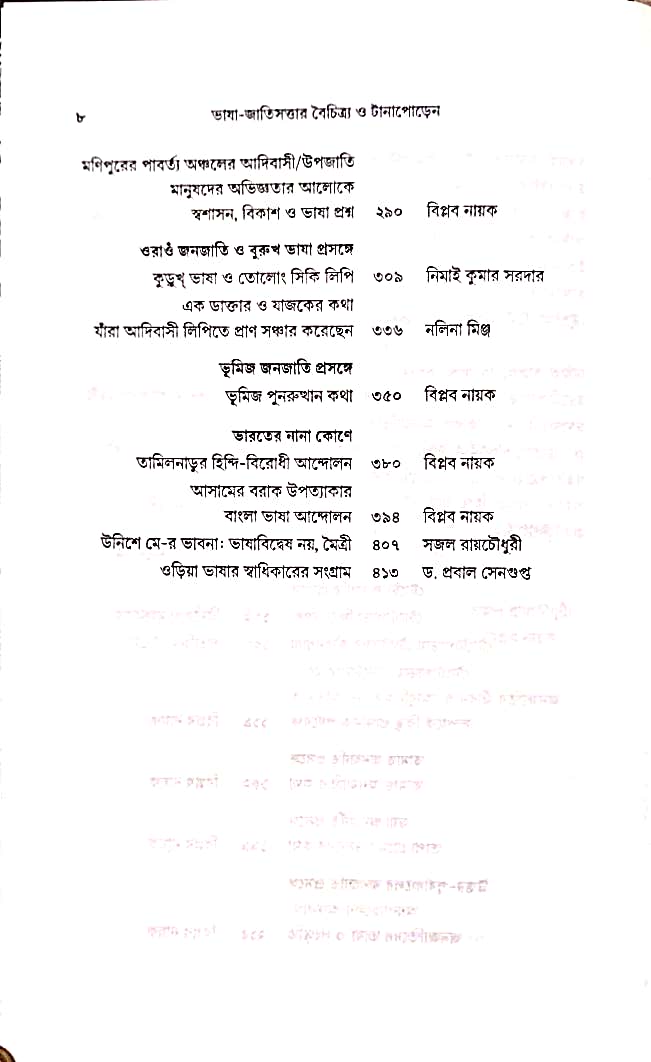 ৮ ভাষা-জাতিসত্তার বৈচিত্র্য ও টানাপোড়েন
মণিপুরের পার্বত্য অঞ্চলের আদিবাসী/উপজাতি
মানুষদের অভিজ্ঞতার আলোকে
স্বশাসন, বিকাশ ও ভাষা প্রশ্ন ২৯০ বিপ্লব নায়ক
ওরাওঁ জনজাতি ও কুরুখ ভাষা প্রসঙ্গে
কুড়ুখ্ ভাষা ও তোলোং সিকি লিপি ৩০৯ নিমাই কুমার সরদার
এক ডাক্তার ও যাজকের কথা
যাঁরা আদিবাসী লিপিতে প্রাণ সঞ্চার করেছেন ৩৩৬ নলিনা মিঞ্জ
ভূমিজ জনজাতি প্রসঙ্গে
ভূমিজ পুনরুত্থান কথা ৩৫০ বিপ্লব নায়ক
ভারতের নানা কোণে
তামিলনাড়ুর হিন্দি-বিরোধী আন্দোলন ৩৮০ বিপ্লব নায়ক
আসামের বরাক উপত্যাকার
বাংলা ভাষা আন্দোলন ৩৯৪ বিপ্লব নায়ক
উনিশে মে-র ভাবনা: ভাষাবিদ্বেষ নয়, মৈত্রী ৪০৭ সজল রায়চৌধুরী
ওড়িয়া ভাষার স্বাধিকারের সংগ্রাম ৪১৩ ড. প্রবাল সেনগুপ্ত